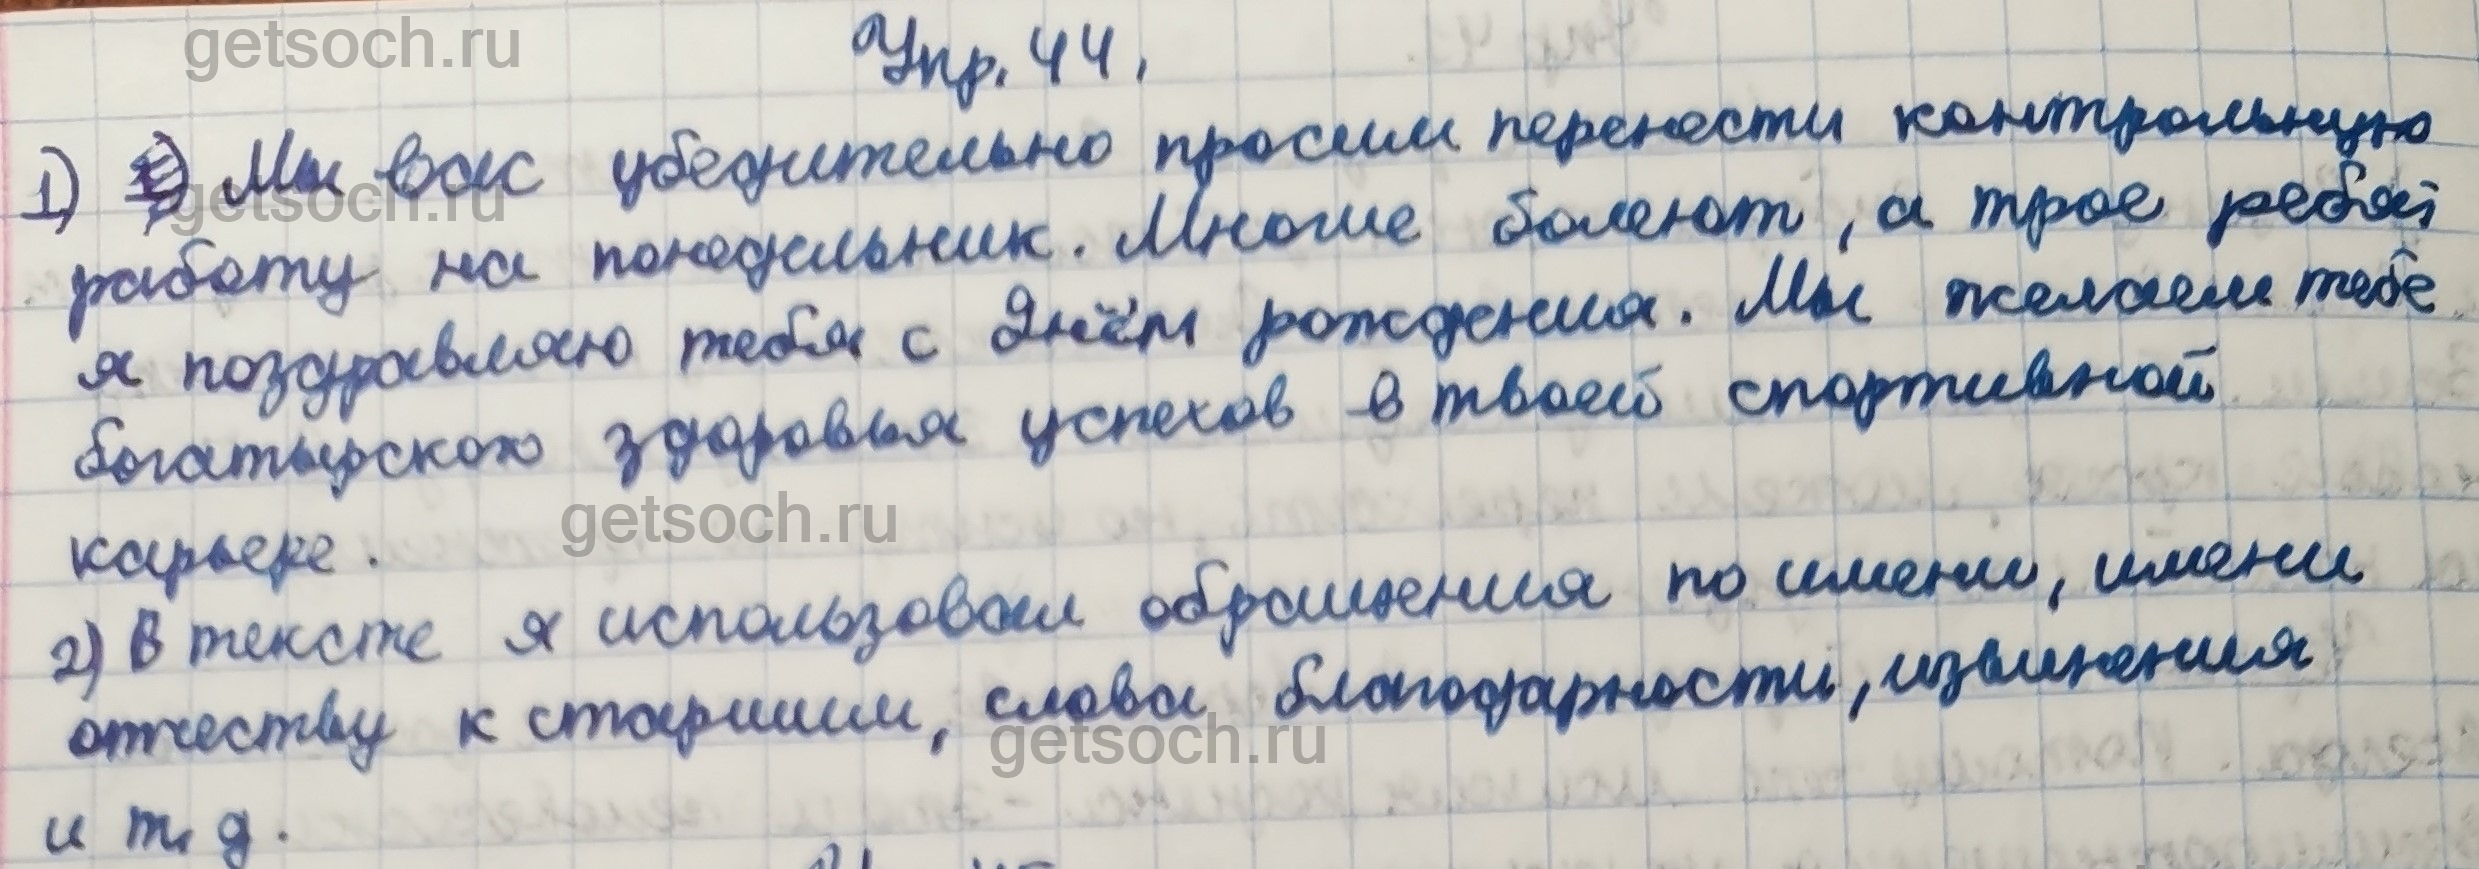 getsoch.ru
Упр. 44.
1) Мы вас убедительно просим перенести контрольную
getsoch.ru
работу на понедельник. Многие болеют, а трое ребят
я поздравляю тебя с Днём рождения. Мы желаем тебе
богатырского здоровья успехов в твоей спортивной
getsoch.ru
карьере.
2) В тексте я использовал обращения по имени, имени
отчеству к старшим, слова благодарности, извинения
getsoch.ru
и т. д.